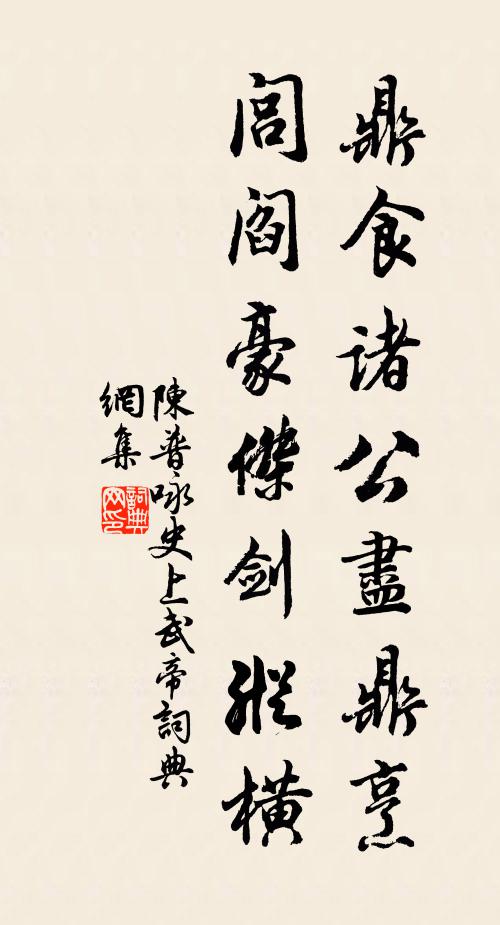 鼎食諸公盡鼎烹
閭閻豪傑劍縱橫
陳普咏史上武帝詞典
網集
詞典
网印